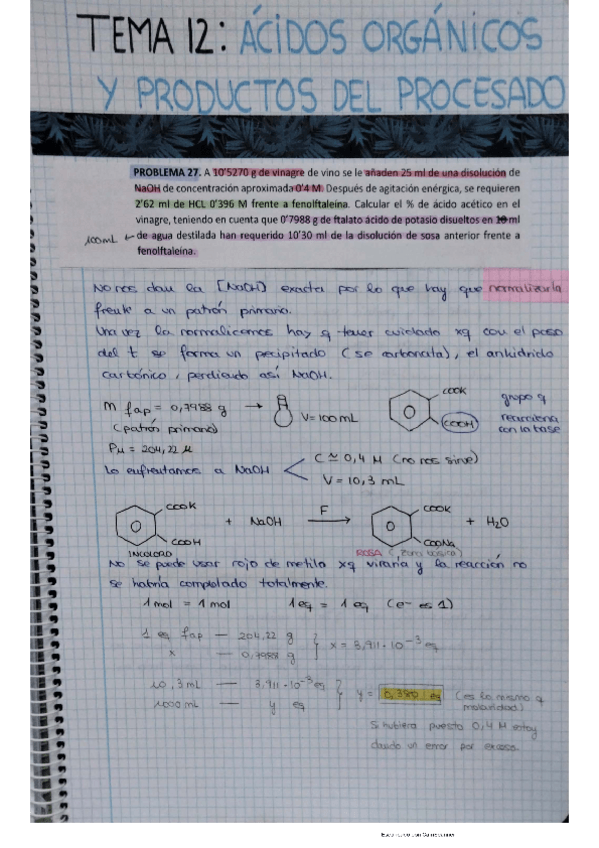 TEMA 12: ÁCIDOS ORGÁNICOS
Y PRODUCTOS DEL PROCESADO
PROBLEMA 27. A 10'5270 g de vinagre de vino se le añaden 25 ml de una disolución de
NaOH de concentración aproximada 0'4 M. Después de agitación enérgica, se requieren
2'62 ml de HCL 0'396 M frente a fenolftaleína. Calcular el % de ácido acético en el
vinagre, teniendo en cuenta que 0'7988 g de ftalato ácido de potasio disueltos en 10 ml
100mL de agua destilada han requerido 10'30 ml de la disolución de sosa anterior frente a
fenolftaleína.
No nos dan la [NaOH] exacta por lo que hay que normalizarla
frente a un patrón primario.
Una vez la normalicemos hay q tener cuidado xq con el paso
del t se forma un precipitado (se carbonata), el anhídrido
carbónico, perdiendo así NaOH.
m fap = 0,7988 g → V=100mL
(patrón primario)
COOK
COOH
grupo q
reacciona
con la base
PM = 204,22 M
Lo enfrentamos a NaOH
C ≃ 0,4 M (no nos sirve)
V = 10,3 mL
COOK
COOH
+ NaOH
F
→
COOK
COONa
+ H2O
INCOLORO
ROSA (zona básica)
No se puede usar rojo de metilo xq viraría y la reacción no
se habría completado totalmente.
1 mol = 1 mol 1 eq = 1 eq (e- es 1)
1 eq fap — 204,22 g
x — 0,7988 g
x = 3,911·10⁻³ eq
10,3 mL — 3,911·10⁻³ eq
1000 mL — y eq
y = 0,380 eq (es lo mismo q
molaridad)
Si hubiera puesto 0,4 M estoy
dando un error por exceso.